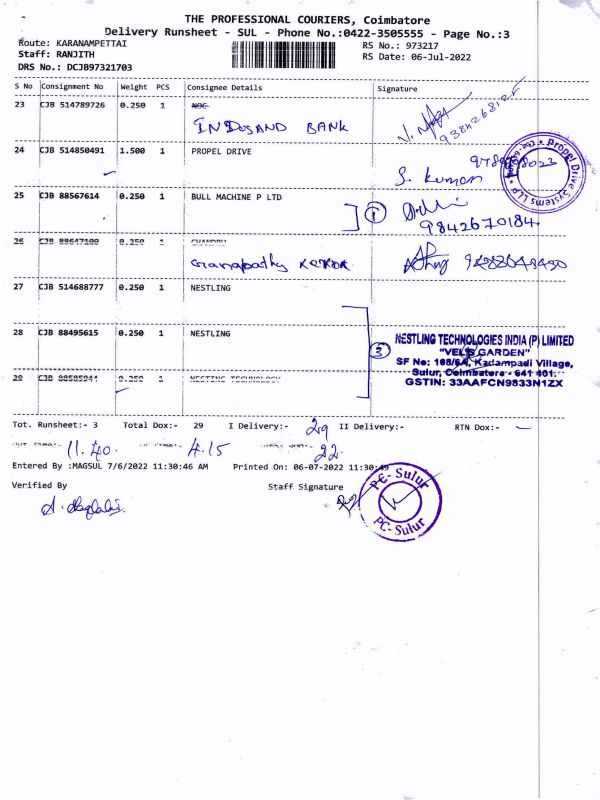 THE PROFESSIONAL COURIERS, Coimbatore
Delivery Runsheet - SUL - Phone No.:0422-3505555 - Page No.:3
Route: KARANAMPETTAI
Staff: RANJITH
DRS No.: DCJB97321703
RS No.: 973217
RS Date: 06-Jul-2022
S No Consignment No Weight PCS Consignee Details Signature
23 CJB 514789726 0.250 1 NOC
INDUSAND BANK
24 CJB 514850491 1.500 1 PROPEL DRIVE
S. Kumar
Propel Drive Systems LLP
25 CJB 88567614 0.250 1 BULL MACHINE P LTD
1
9842670184
26 CJB 88647100 0.250 1 CHANDRU
Ganapathy
27 CJB 514688777 0.250 1 NESTLING
28 CJB 88495615 0.250 1 NESTLING
3
NESTLING TECHNOLOGIES INDIA (P) LIMITED
"VEL'S GARDEN"
SF No: 168/6A, Kadampadi Village,
Sulur, Coimbatore - 641 401.
GSTIN: 33AAFCN9833N1ZX
29 CJB 88585941 0.250 1 NESTING TECHNOLOGY
Tot. Runsheet:- 3 Total Dox:- 29 I Delivery:- 29 II Delivery:- RTN Dox:-
11.40 4.15 22
Entered By :MAGSUL 7/6/2022 11:30:46 AM Printed On: 06-07-2022 11:30:49
Verified By Staff Signature
PC- Sulur
PC- Sulur